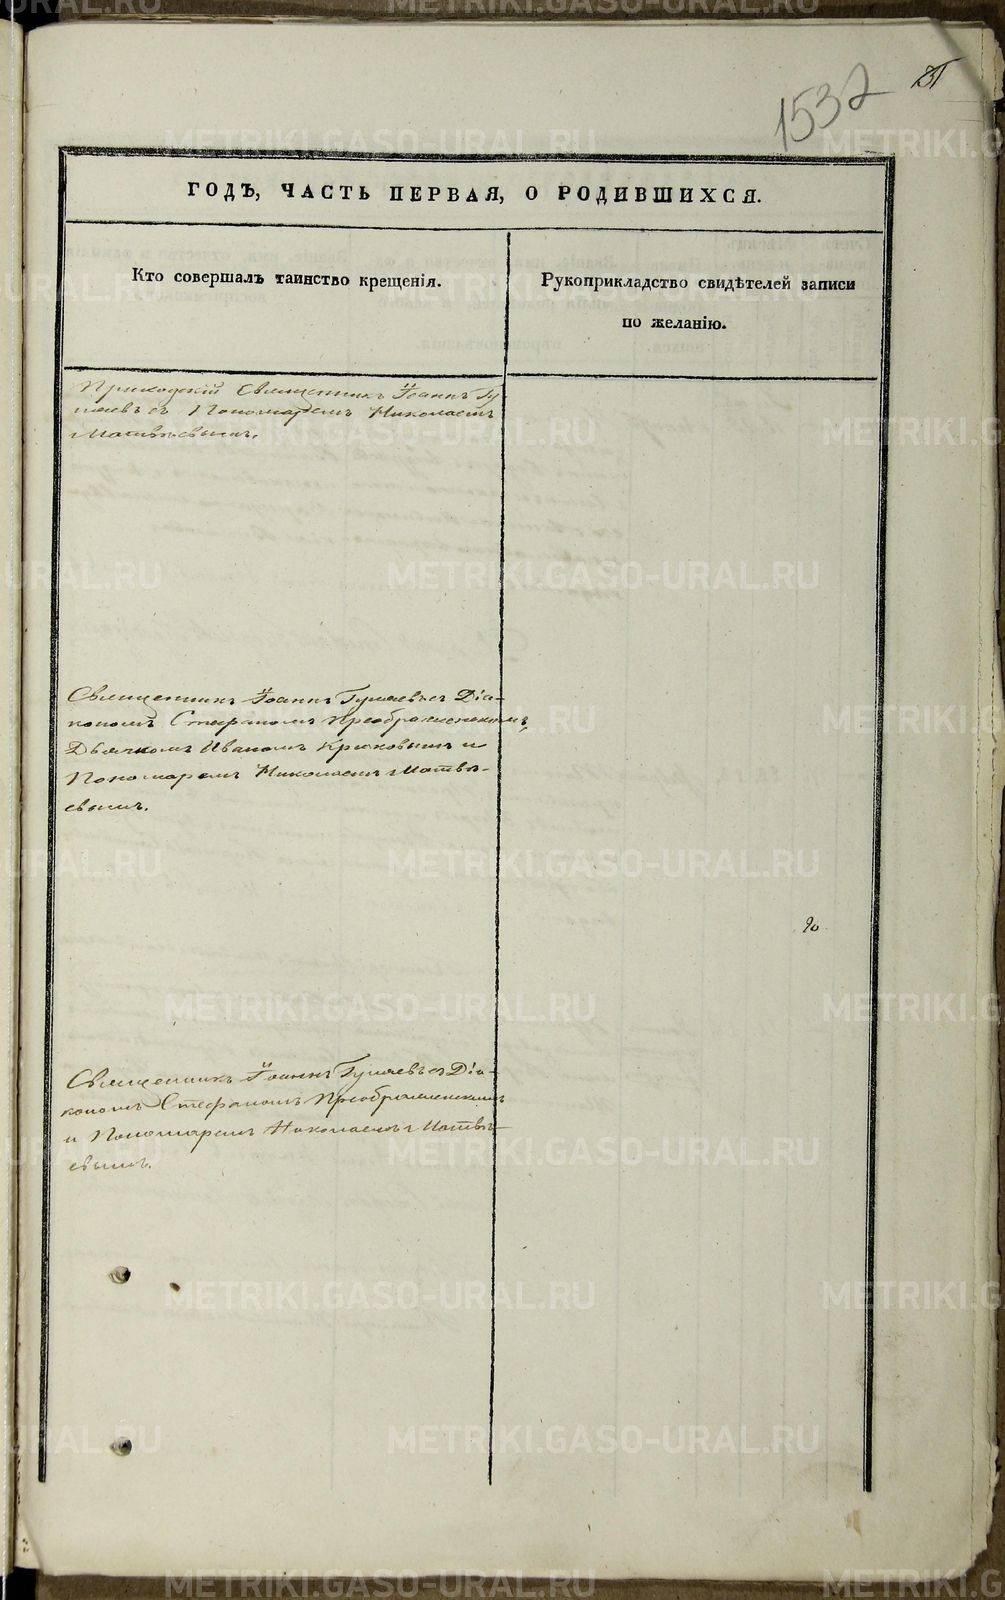 1532
ГОДЪ, ЧАСТЬ ПЕРВАЯ, О РОДИВШИХСЯ.
Кто совершалъ таинство крещенія.
Рукоприкладство свидѣтелей записи
по желанію.
Приходскій Священникъ Іоаннъ
съ Пономаремъ Николаемъ
Матвѣевымъ.
Священникъ Іоаннъ съ Діа-
кономъ Стефаномъ Преображенскимъ,
Дьячкомъ Иваномъ Крюковымъ и
Пономаремъ Николаемъ Матвѣ-
евымъ.
Священникъ Іоаннъ съ Діа-
кономъ Стефаномъ Преображенскимъ
и Пономаремъ Николаемъ Матвѣ-
евымъ.
METRIKI.GASO-URAL.RU